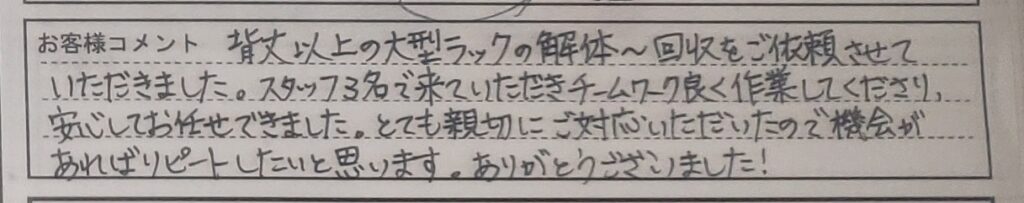 お客様コメント 背丈以上の大型ラックの解体～回収をご依頼させて
いただきました。スタッフ3名で来ていただきチームワーク良く作業してくださり、
安心してお任せできました。とても親切にご対応いただいたので機会が
あればリピートしたいと思います。ありがとうございました!